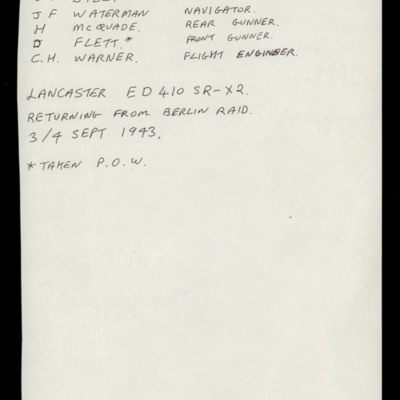 J F WATERMAN NAVIGATOR.
H McQUADE. REAR GUNNER.
D FLETT.* FRONT GUNNER.
C.H. WARNER. FLIGHT ENGINEER.
LANCASTER ED410 SR-X2.
RETURNING FROM BERLIN RAID.
3/4 SEPT 1943.
*TAKEN P.O.W.